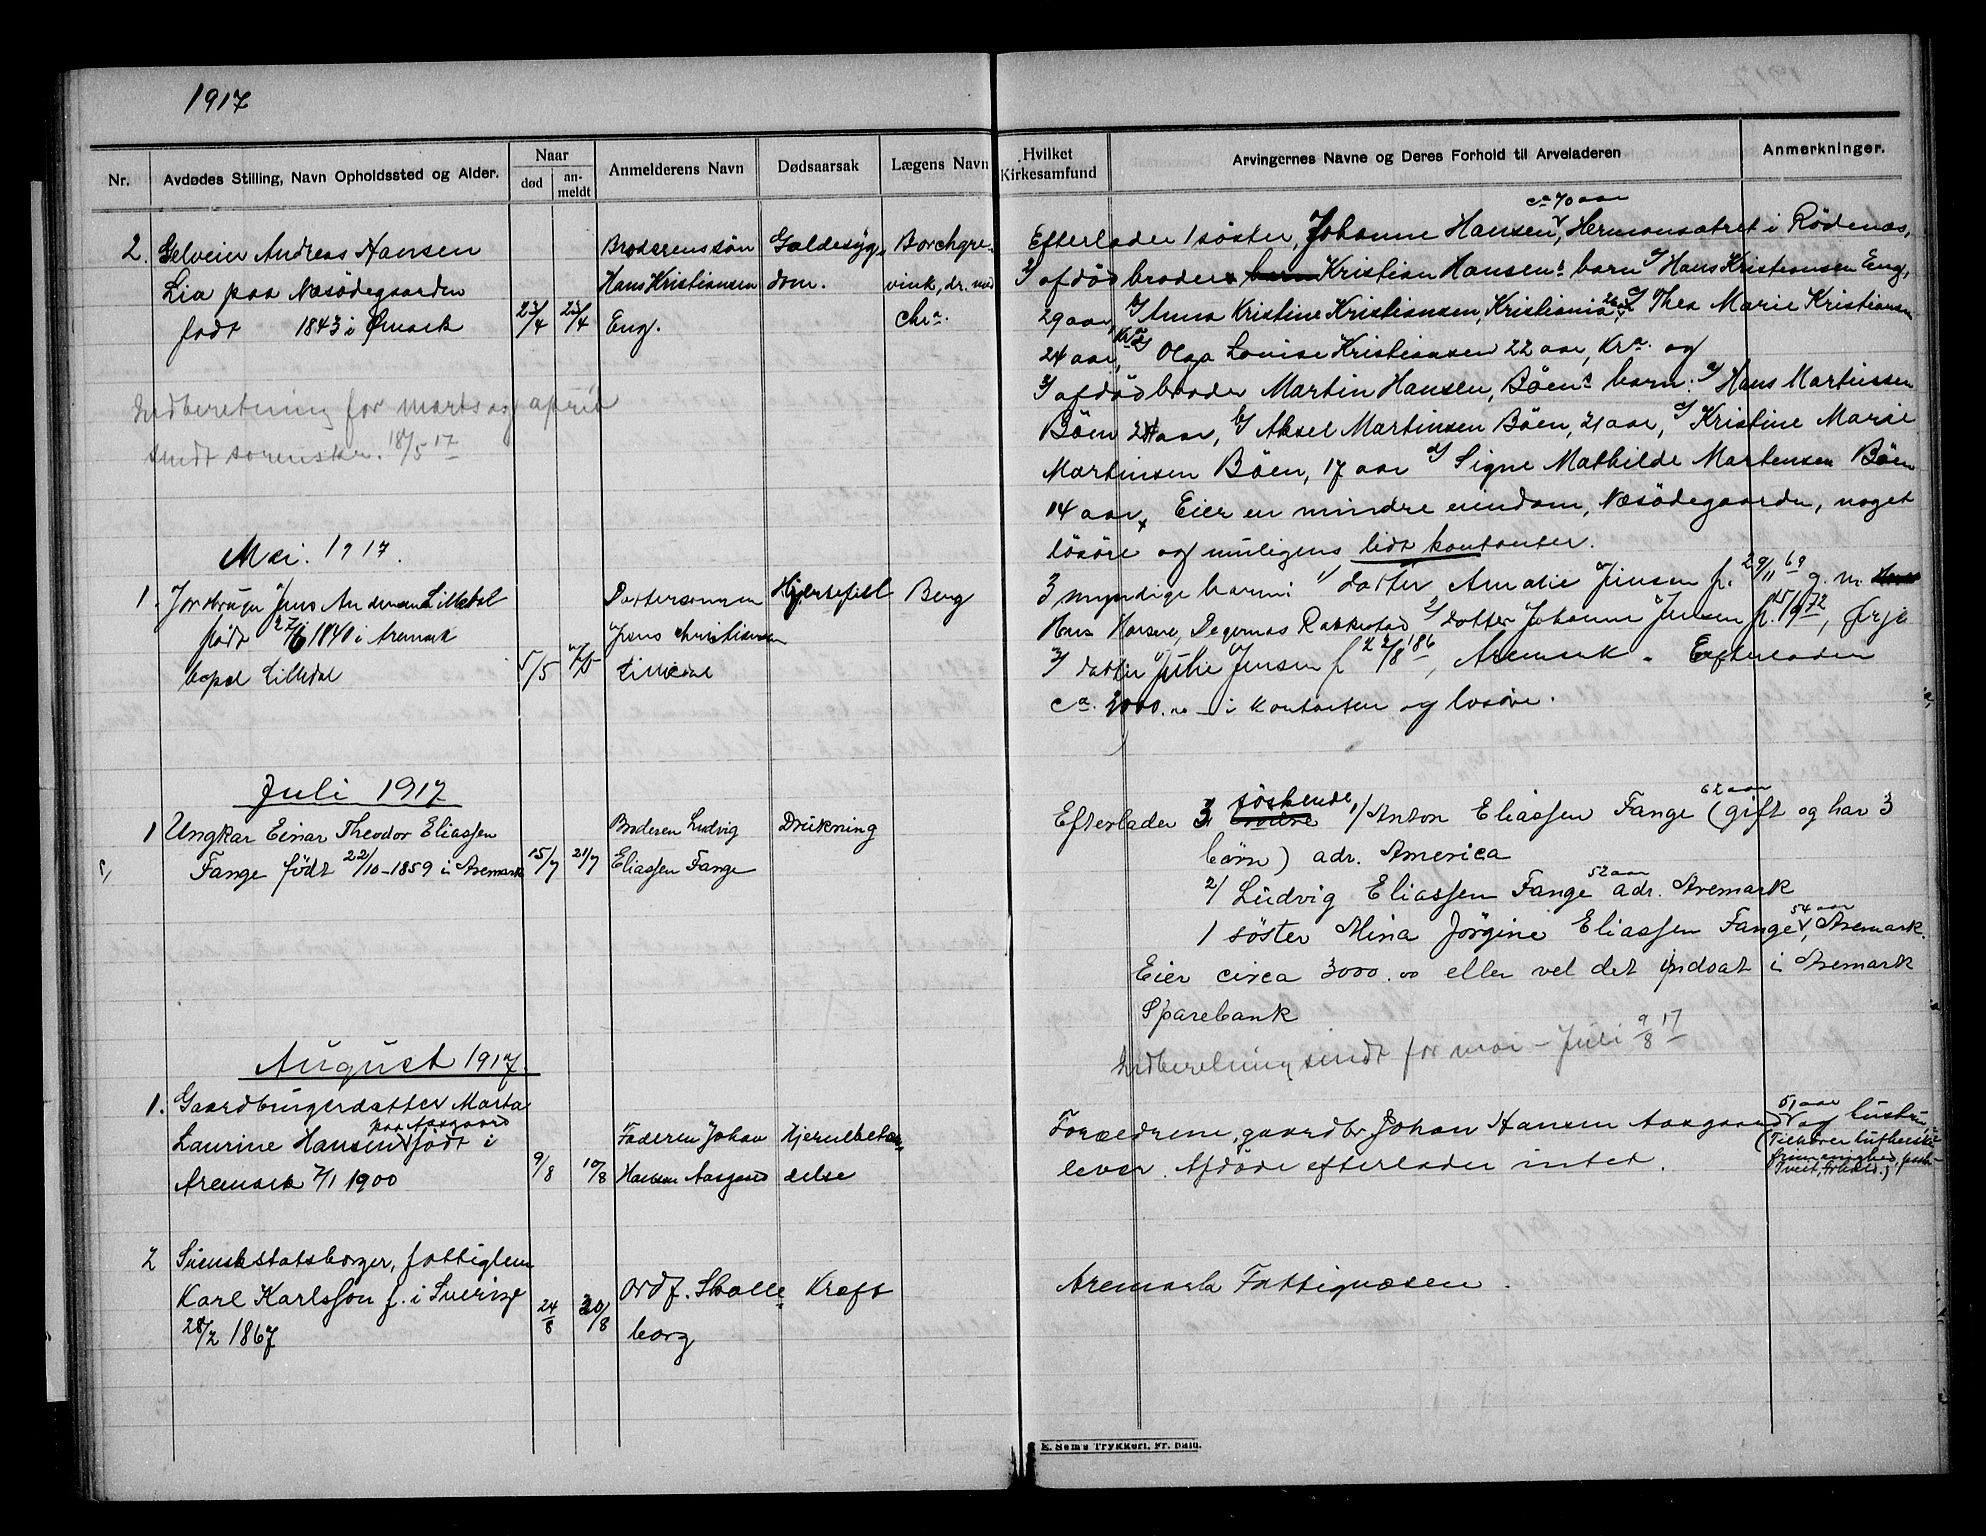 1917
Nr.
Avdødes Stilling, Navn Opholdssted og Alder.
Naar
død
an-
meldt
Anmelderens Navn
Dødsaarsak
Lægens Navn
Hvilket
Kirkesamfund
Arvingernes Navne og Deres Forhold til Arveladeren
Anmerkninger.
2. Gelvein Andreas Hansen
Lia paa Næsødegaarden
født 1843 i Ømark
23/4 23/4
Broderenssøn
Hans Kristiansen
Eng.
Galdesyg-
dom.
Borchgre-
vink, dr. med
Chra.
ca 70 aar
Efterlader 1 søster, Johanne Hansen, Hermansætret i Rødenæs,
2/ afdød broder Kristian Hansens barn a/ Hans Kristiansen Eng,
29 aar, b/ Anna Kristine Kristiansen, Kristiania 26 c/ Thea Marie Kristiansen
24 aar, Kra d/ Olga Lovise Kristiansen 22 aar, Kra. og
3/ afdød broder Martin Hansen, Bøens barn. a/ Hans Martinsen
Bøen 24 aar, b/ Aksel Martinsen Bøen, 21 aar, c/ Kristine Marie
Martinsen Bøen, 17 aar d/ Signe Mathilde Martensen Bøen
14 aar, Eier en mindre eiendom, Næsødegaarden, noget
løsøre og muligens lidt kontanter.
Indberetning for marts og april
sendt sorenskr. 18/5 17
Mai. 1917.
1. Jordbruger Jens Andersen Lilledal
født 27/6 1840 i Aremark
bopæl Lilledal
5/5 7/5
Dattersønnen
Jens Christiansen
Lilledal
Hjertefeil
Berg
3 myndige barn: 1/ datter Amalie Jensen f. 29/11 69 g. m.
Hans Hansen, Degernes Rakkestad 2/ datter Johanne Jensen f. 15/9 72, Ørje
3/ datter Julie Jensen f 22/8 186 , Aremark. Efterlader
ca. 2000.00 i kontanter og løsøre.
Juli 1917
1 Ungkar Einar Theodor Eliassen
Fange født 22/10-1859 i Aremark
15/7 21/7
Broderen Ludvig
Eliassen Fange
Drukning
Efterlader 3 brødre søskende 1/ Anton Eliassen Fange 62 aar (gift og har 3
børn) adr. America
2/ Ludvig Eliassen Fange 52 aar adr. Aremark
1 søster Mina Jørgine Eliassen Fange 54 aar, Aremark.
Eier circa 3000.00 eller vel det indsat i Aremark
Sparebank
Indberetning sendt for mai - Juli 9/8 17
August 1917.
1. Gaardbrugerdatter Marta
Laurine Hansen paa Aasgaard født i
Aremark 7/1 1900
9/8 10/8
Faderen Johan
Hansen Aasgaard
Hjernebetæn-
delse
Forældrene, gaardbr Johan Hansen Aasgaard 51 aar og hustru
lever. Afdøde efterlader intet.
Tilhører luthersk
frimenighed
2 Svensk statsborger, fattiglem
Karl Karlsson f. i Sverige
28/2 1867
24/8 30/8
Ordf. Skolle-
borg
Kræft
Aremark Fattigvæsen.
E. Sem's Trykkeri, Fr. hald.